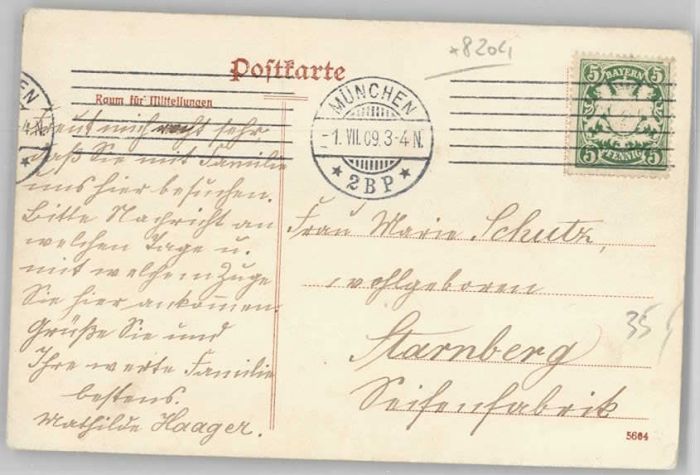 *8204
Postkarte
Raum für Mitteilungen
MÜNCHEN
-1. VII. 09. 3-4 N.
* 2BP *
5 BAYERN 5
5 PFENNIG 5
EN
4 N.
*
freut mich recht sehr
daß Sie mit Familie
uns hier besuchen.
Bitte Nachricht an
welchen Tage u.
mit welchem Zuge
Sie hier ankommen.
Grüße Sie und
Ihre werte Familie
bestens.
Mathilde Haager.
Frau Marie Schutz,
wohlgeboren
Starnberg
Seifenfabrik
35
5604